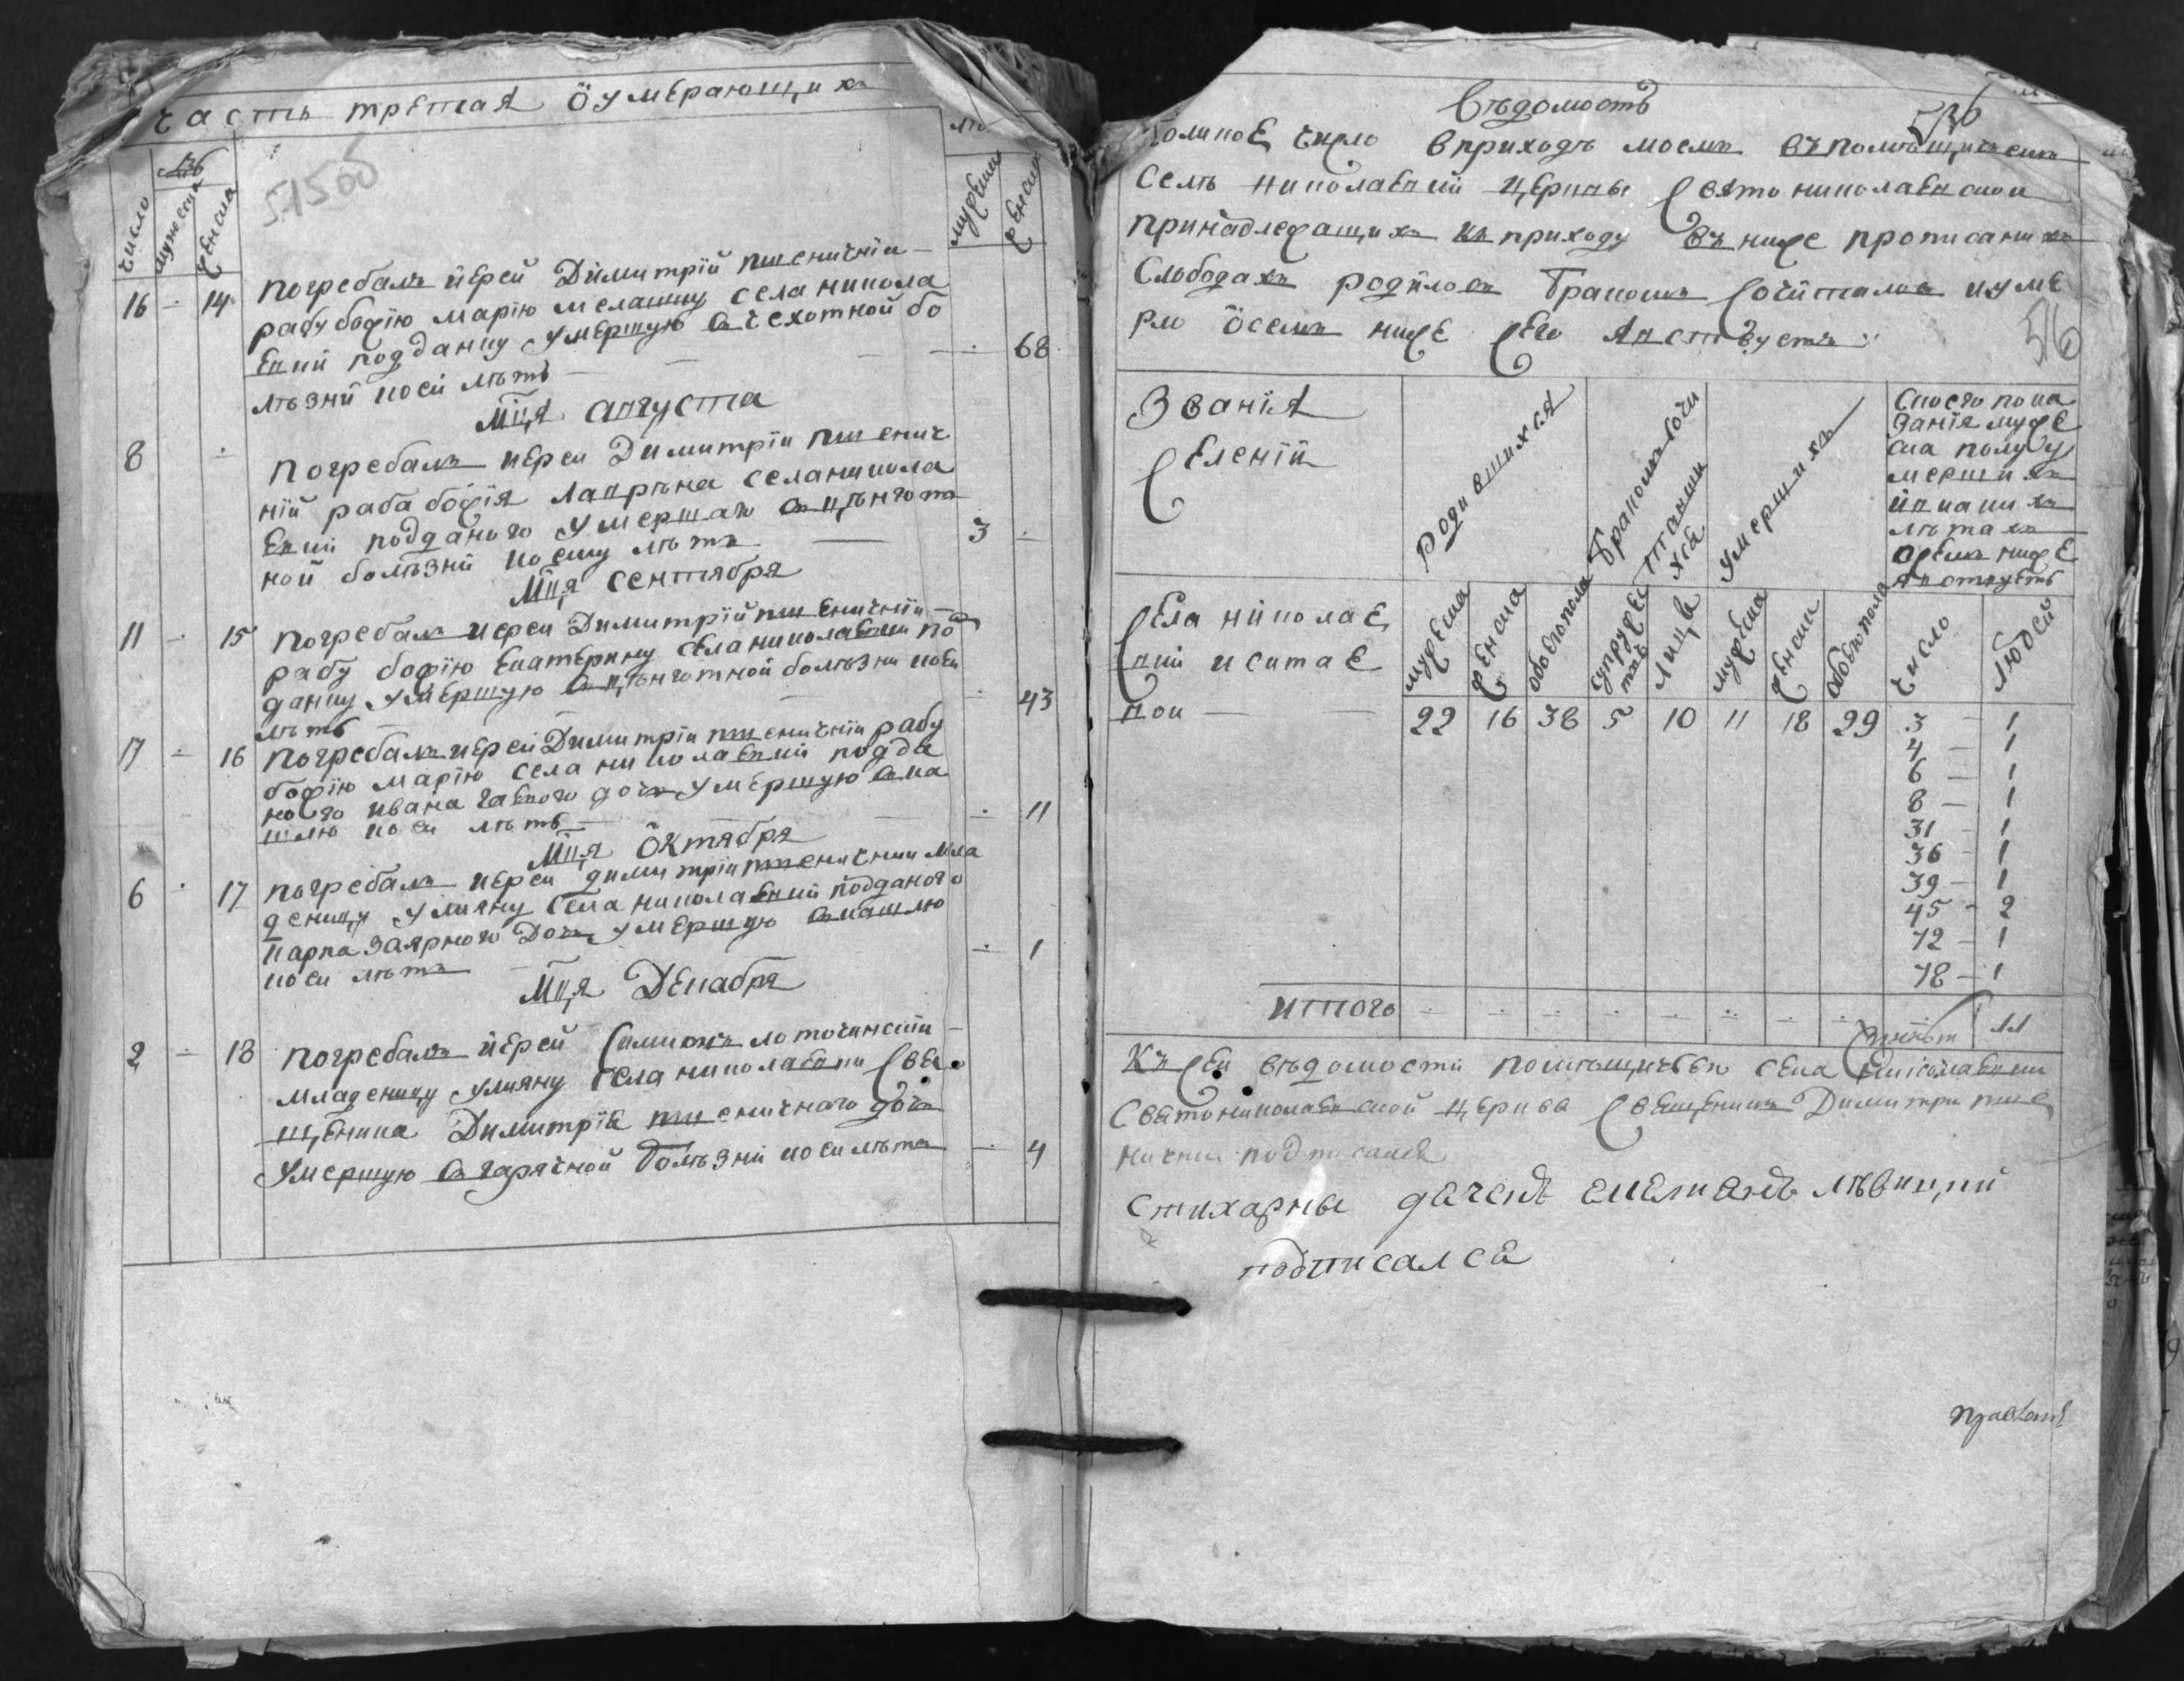 Часть третая о умерающихъ
515об
число
мужеска
женска
мужеска
женска
16 - 14 погребалъ иерей Димитрий пшеничнïи
рабу божïю марïю мелашку села никола
евки подданну умершую съ чехотной бо
лѣзни коей лѣтъ — 68
Мця августа
8 - погребалъ иереи Димитрïи пшенич
нïй раба божïя лаврѣна села никола
евки подданого умершаго съ цынгот
ной болѣзни коему лѣтъ — 3 -
Мця сентября
11 - 15 погребалъ иереи Димитрïй пшеничнïи
рабу божïю Екатерину села николаевки под
данну умершую съ цынготной болѣзни коеи
лѣтъ — 43
17 - 16 погребалъ иерей Димитрïи пшеничнïи рабу
божïю марïю села николаевки подда
ного ивана гаевого дочь умершую съ ка
шлю коеи лѣтъ - 11
Мця Октября
6 - 17 погребалъ иереи димитрïи пшеничнïи мла
деницу улияну села николаевки подданого
карпа заярного дочь умершую съ кашлю
коеи лѣтъ - 1
Мця Декабря
2 - 18 погребалъ иерей Симионъ логочинскïи
младеницу улияну села николаевки свя
щеника Димитрïя пшеничного дочь
умершую съ гарячной болѣзни коеи лѣтъ - 4
Вѣдомость
536
коликое число в приходѣ моемъ въ помѣщическомъ
селѣ николаевки церквы Свято николаевской
принадлежащихъ къ приходу въ ниже прописанихъ
Слободахъ родилось бракомъ сочиталось и уме
рло о семъ ниже сего явствуетъ
516
Званïя
Селенïй
родившихся
бракомъ сочи
тавши
хся
умершихъ
сколго пока
занïя муже
ска полу у
мерши хъ
и в каких
лѣтахъ
о семъ ниже
явствуетъ
Села николае
вки и свитае
вки
мужеска
женска
обоего пола
супружес
твъ
лицъ
мужеска
женски
обоего пола
число
людей
22 16 38 5 10 11 18 29 3 - 1
4 - 1
6 - 1
8 - 1
31 - 1
36 - 1
39 - 1
45 - 2
72 - 1
78 - 1
итого - - - - - - - - 11
Къ сеи вѣдомости помѣщичьей села николаевки
Святониколаевской церкве священикъ Димитри пше
ничнии подписался
Стихарны дячекъ емелиянъ лѣвицкий
подписался